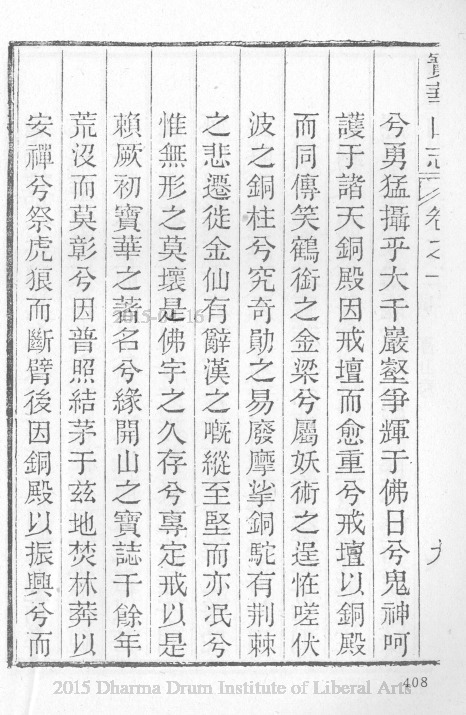 寶華山志 卷之一 九
兮勇猛攝乎大千巖壑爭輝于佛日兮鬼神呵
護于諸天銅殿因戒壇而愈重兮戒壇以銅殿
而同傳笑鶴銜之金梁兮屬妖術之逞恠嗟伏
波之銅柱兮究奇勛之易廢摩挲銅駝有荆棘
之悲遷徙金仙有辭漢之嘅縱至堅而亦泯兮
惟無形之莫壞是佛宇之久存兮專定戒以是
賴厥初寶華之著名兮緣開山之寶誌千餘年
荒沒而莫彰兮因普照結茅于茲地焚林莽以
安禪兮祭虎狼而斷臂後因銅殿以振興兮而
408
2015 Dharma Drum Institute of Liberal Arts